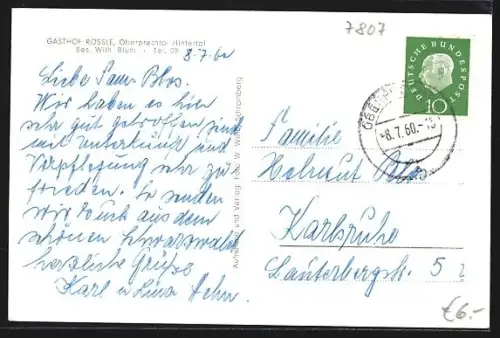 7807
GASTHOF RÖSSLE, Oberprechtal Hintertal
Bes. Wilh. Blum · Tel. 09
8.7.60
Liebe Fam. Blos.
Wir haben es hier
sehr gut getroffen sind
mit Unterkunft und
Verpflegung sehr zu
frieden. So senden
wir Euch aus dem
schönen Schwarzwald
herzliche Grüße
Karl u Lina Hehn.
Aufnahme und Verlag: Foto W.
DEUTSCHE BUNDESPOST
10
-8.7.60.-15
Familie
Helmut Blos
Karlsruhe
Lauterbergstr. 5
€6.-